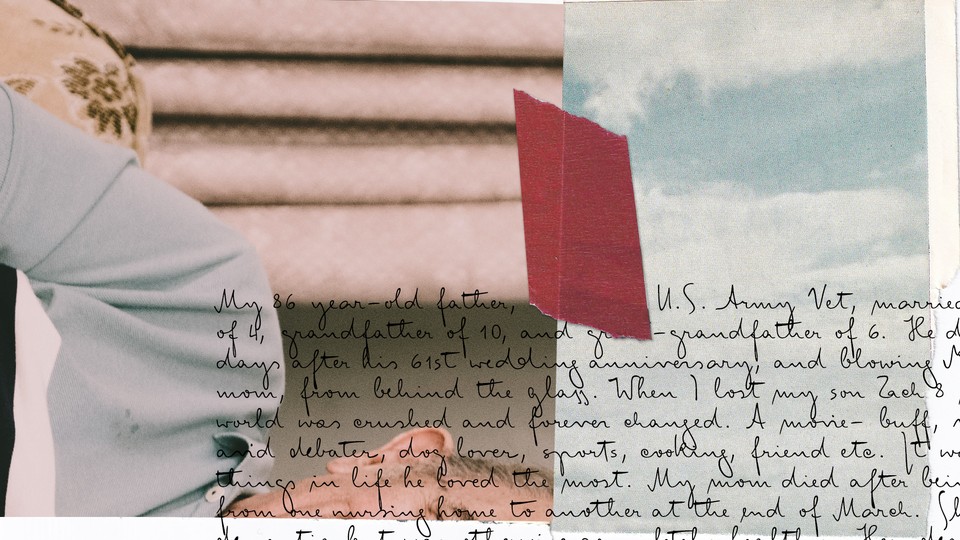 My 86 year-old father, U.S. Army Vet, married
of 4, grandfather of 10, and -grandfather of 6. He
days after his 61st wedding anniversary, and blowing
mom, from behind the glass. When I lost my son Zach 8
world was crushed and forever changed. A movie- buff,
and debater, dog lover, sports, cooking, friend etc. It
things in life he loved the most. My mom died after
from one nursing home to another at the end of March.